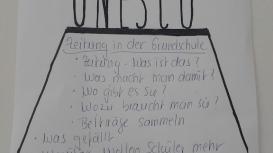 UNESCO
Zeitung in der Grundschule
· Zeitung - Was ist das?
· Was macht man damit?
· Wo gibt es sie?
· Wozu braucht man sie?
· Beiträge sammeln
· Was gefällt
wollen Schüler mehr